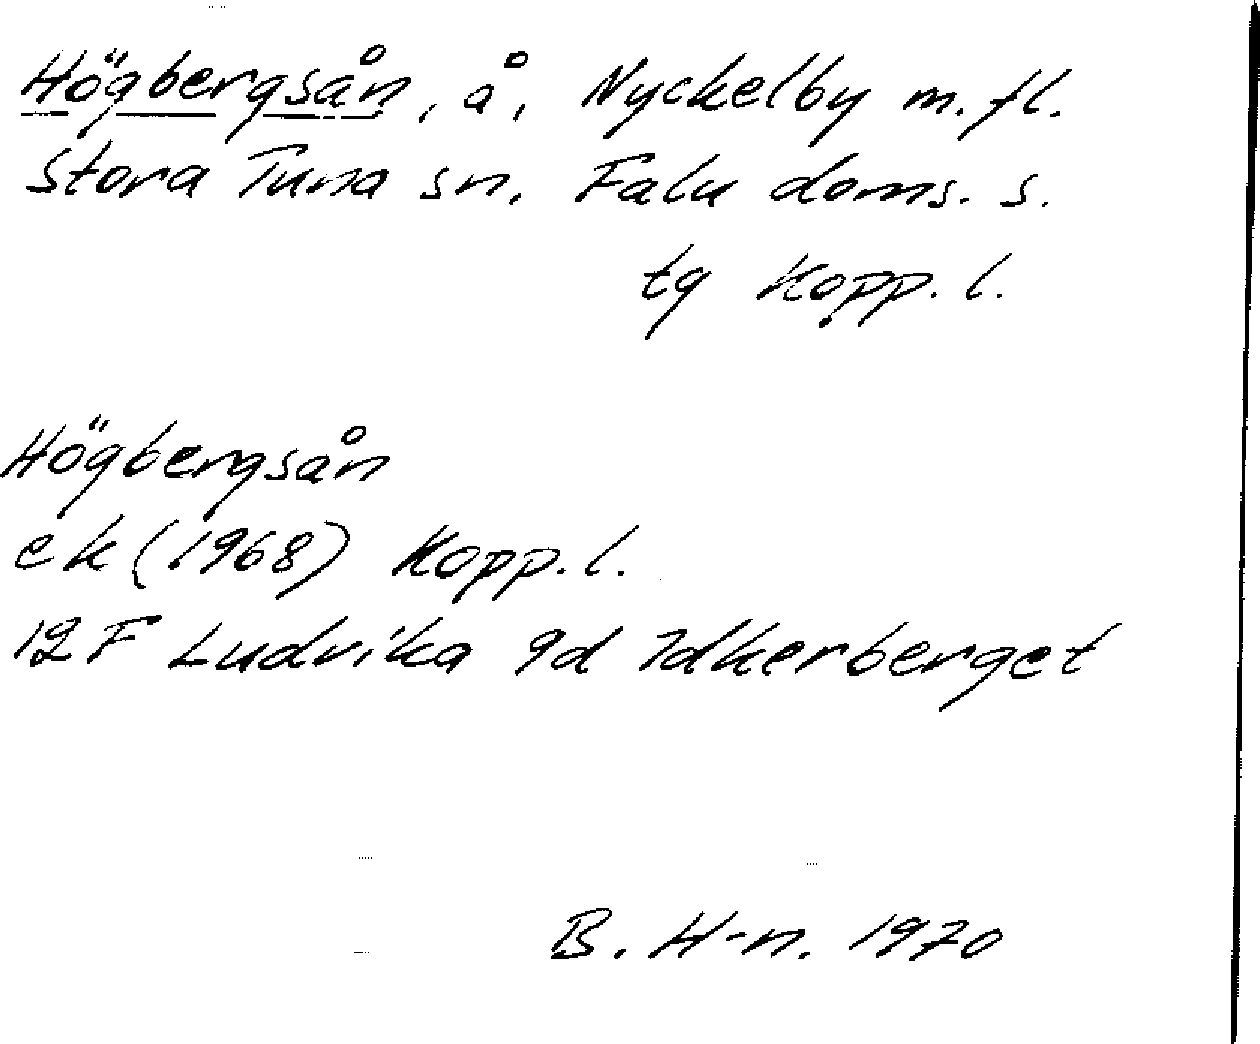 Högbergsån, å, Nyckelby m.fl.
Stora Tuna sn. Falu doms. s.
tg Kopp. l.
Högbergsån
ek (1968) Kopp. l.
12F Ludvika 9d Idkerberget
B. H-n. 1970